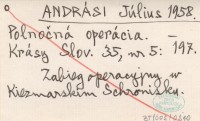 ANDRÁSI Július 1958.
Polnočná operácia. —
Krásy Slov. 35, nr 5: -197.
Zabieg operacyjny w
Kiezmarskim Schronisku.